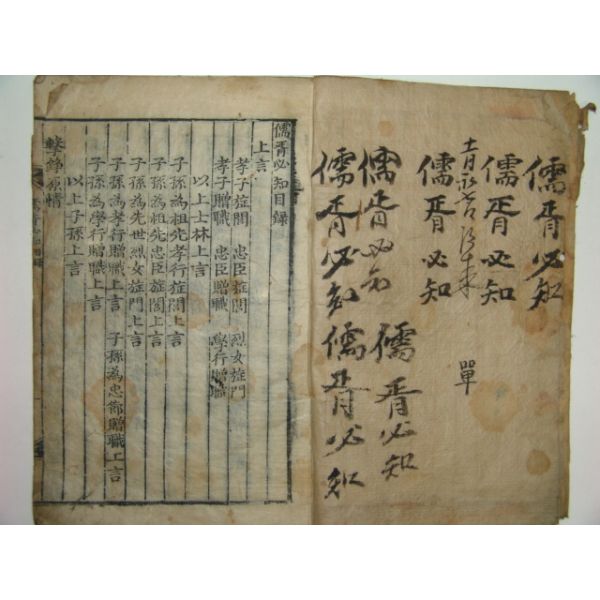 儒胥必知
儒胥必知
單
儒胥必知
儒胥必知
儒胥必知
儒胥必知儒胥必知
儒胥必知目録
上言
孝子旌閭 忠臣旌閭 烈女旌門
孝子贈職 忠臣贈職 學行贈職
以上士林上言
子孫為祖先孝行旌閭上言
子孫為祖先忠臣旌閭上言
子孫為先世烈女旌門上言
子孫為孝行贈職上言 子孫為忠節贈職上言
子孫為學行贈職上言
以上子孫上言
擊錚原情